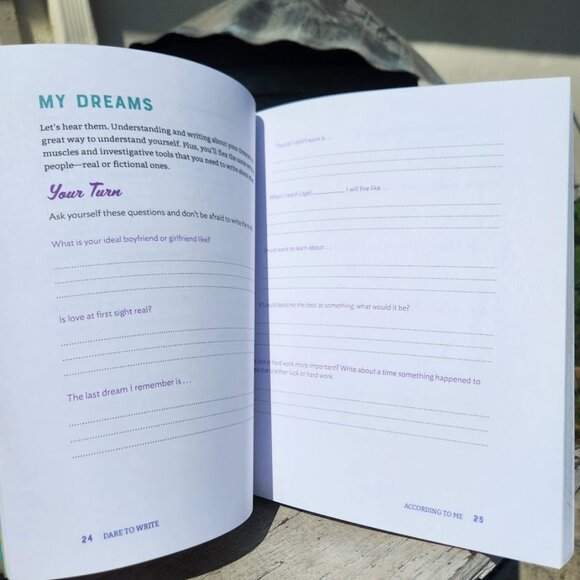 MY DREAMS
Let's hear them. Understanding and writing about your dreams
great way to understand yourself. Plus, you'll flex the same
muscles and investigative tools that you need to write about
people—real or fictional ones.
Your Turn
Ask yourself these questions and don't be afraid to write the
What is your ideal boyfriend or girlfriend like?
Is love at first sight real?
The last dream I remember is . . .
24 DARE TO WRITE
The job I don't want is . . .
When I reach (age), I will live like . . .
I most want to learn about . . .
could become the best at something, what would it be?
luck or hard work more important? Write about a time something happened to
either luck or hard work.
ACCORDING TO ME 25